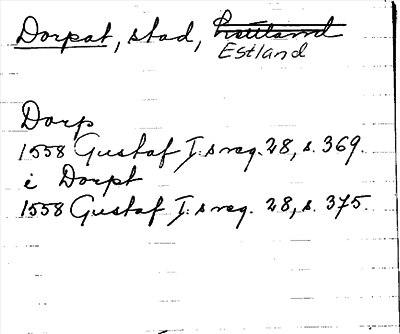 Dorpat, stad,
Estland
Dorp
1558 Gustaf I:s reg. 28, s. 369.
i Dorpt
1558 Gustaf I:s reg. 28, s. 375.